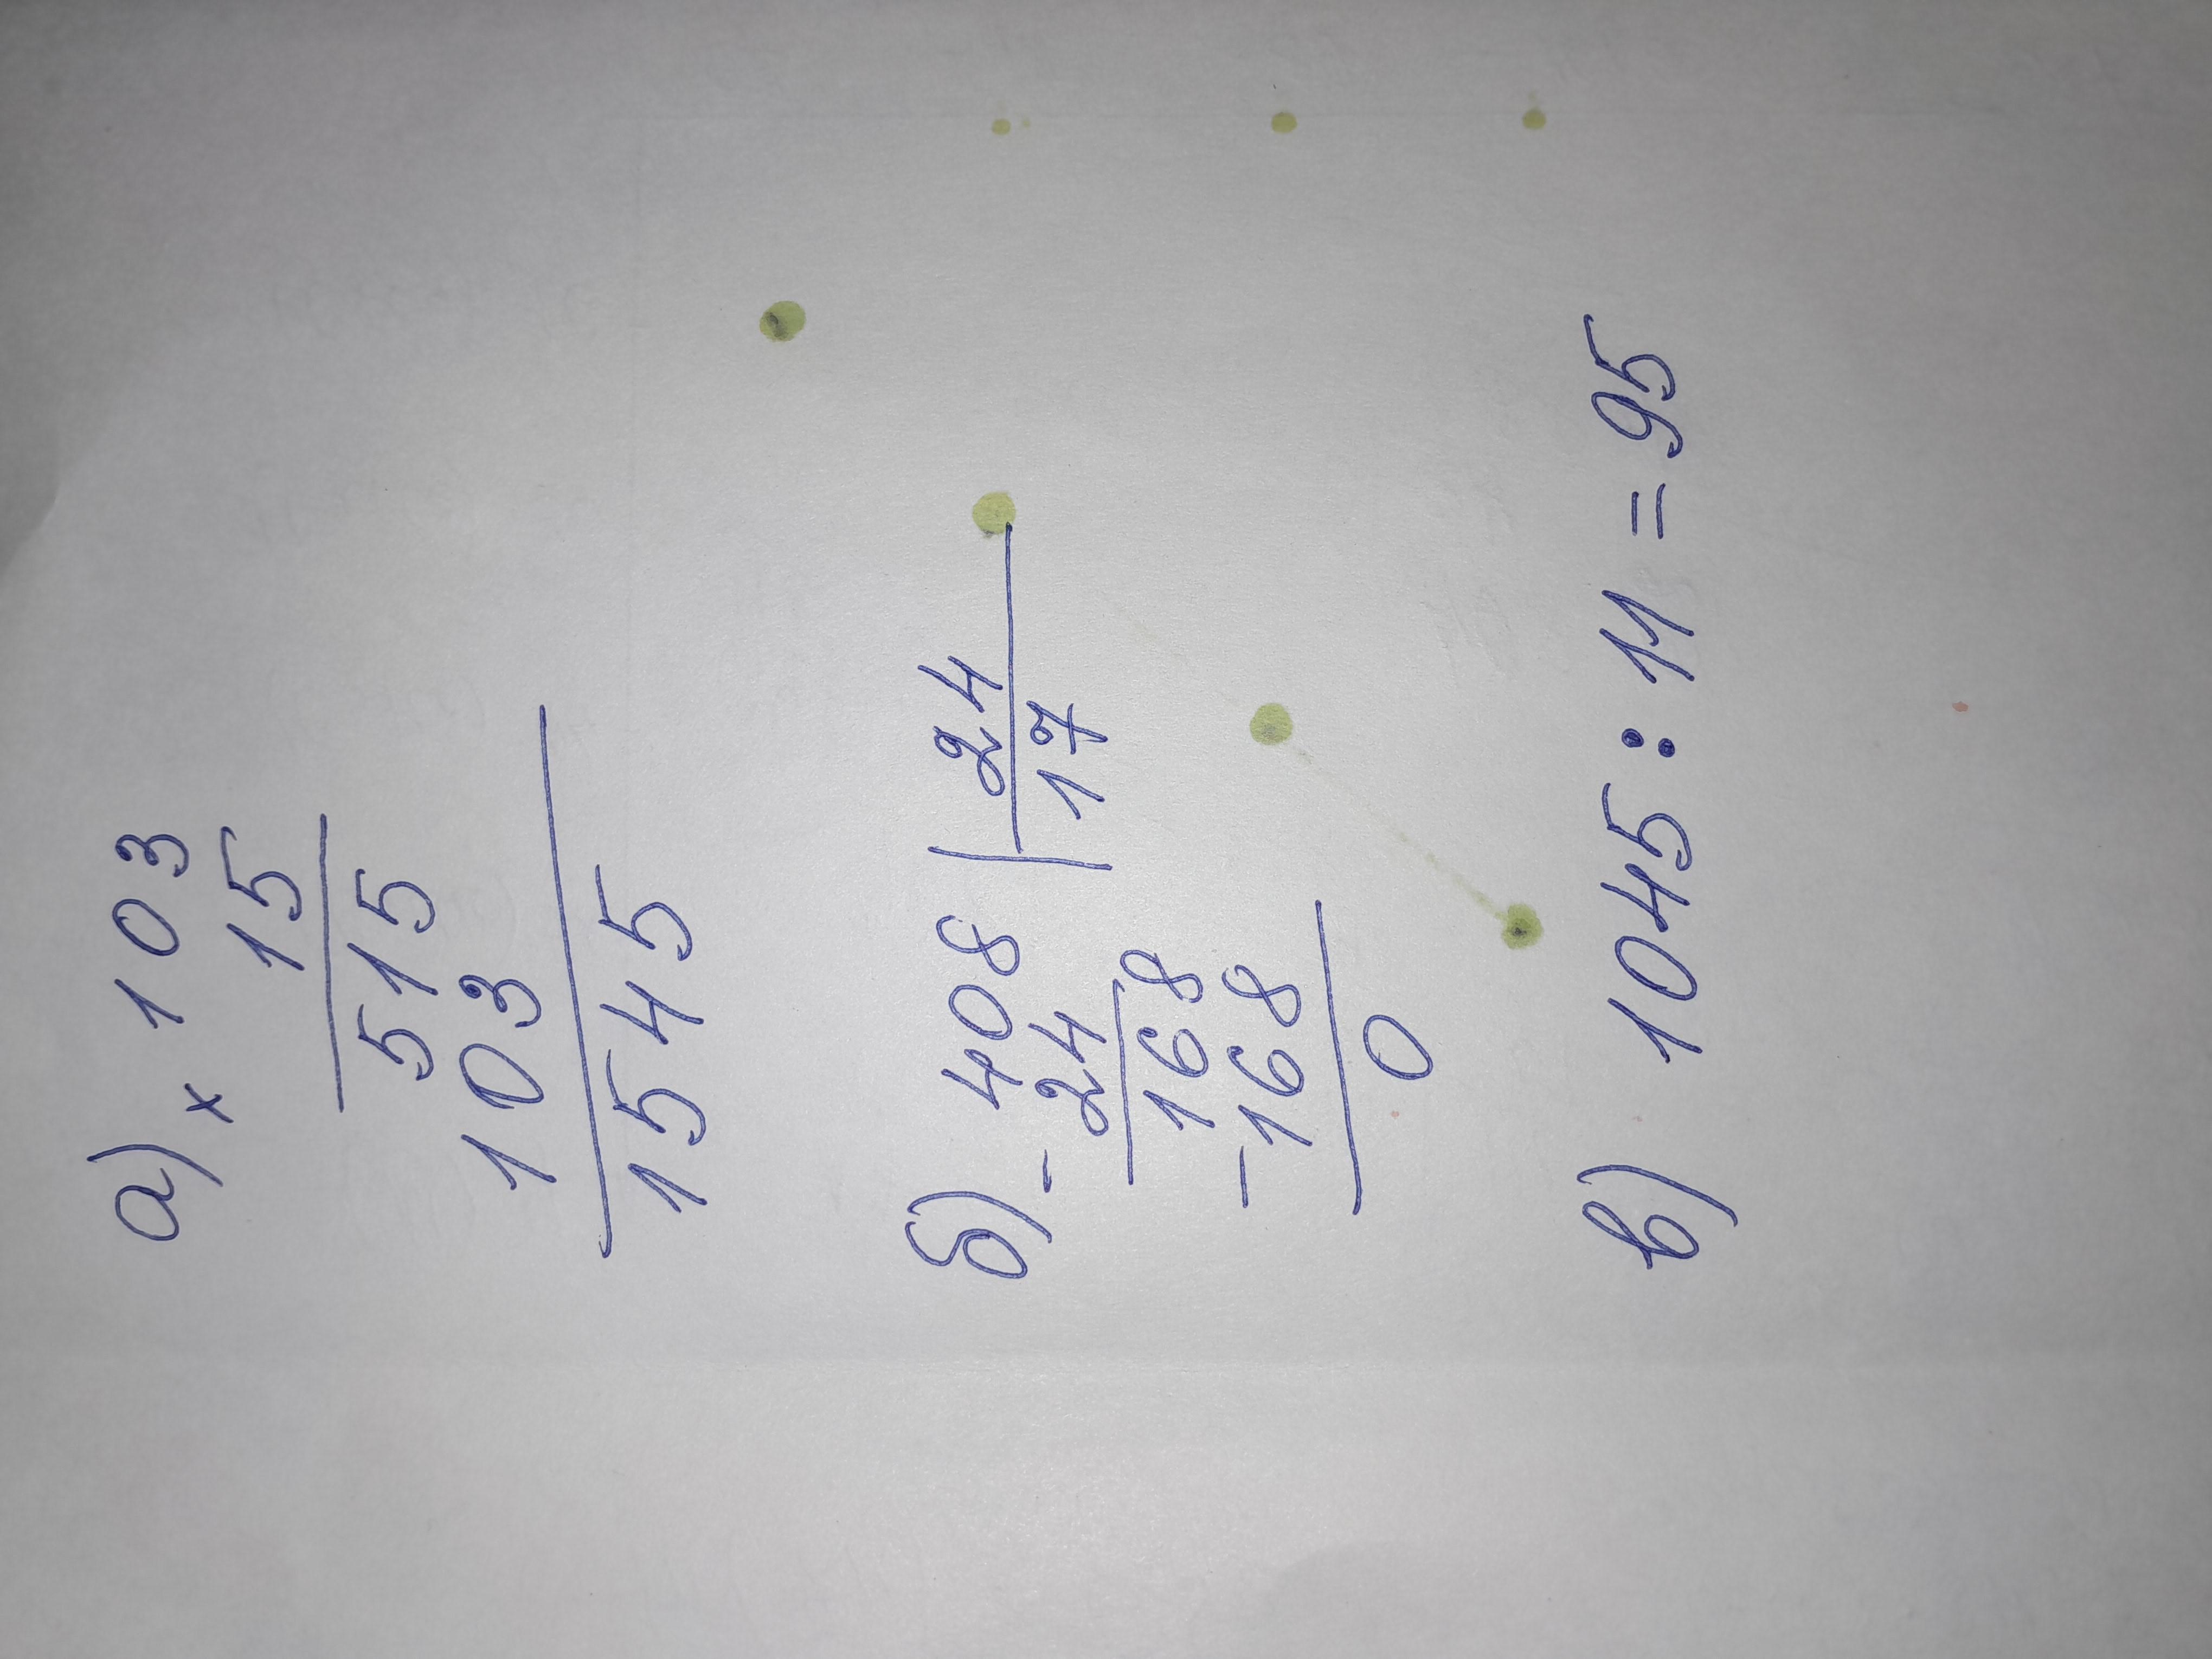 а) × 103
15
515
103
1545
б) - 408 | 24
24 17
168
- 168
0
в) 1045 : 11 = 95